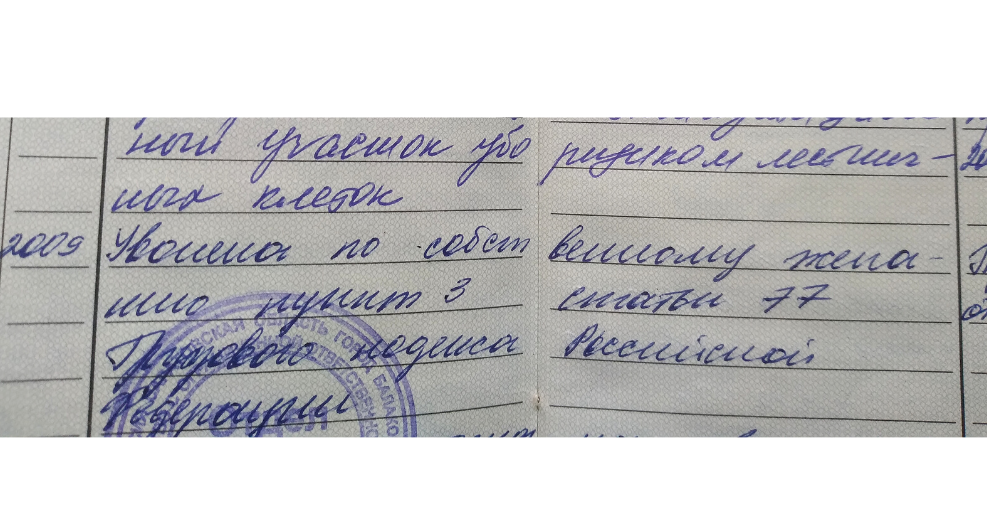 ный участок убо рщиком лестнич-
ных клеток
2009 Уволена по собст венному жела-
нию пункт 3 статьи 77
Трудового кодекса Российской
Федерации
ОБЛАСТЬ ГОРОД БАЛАКО